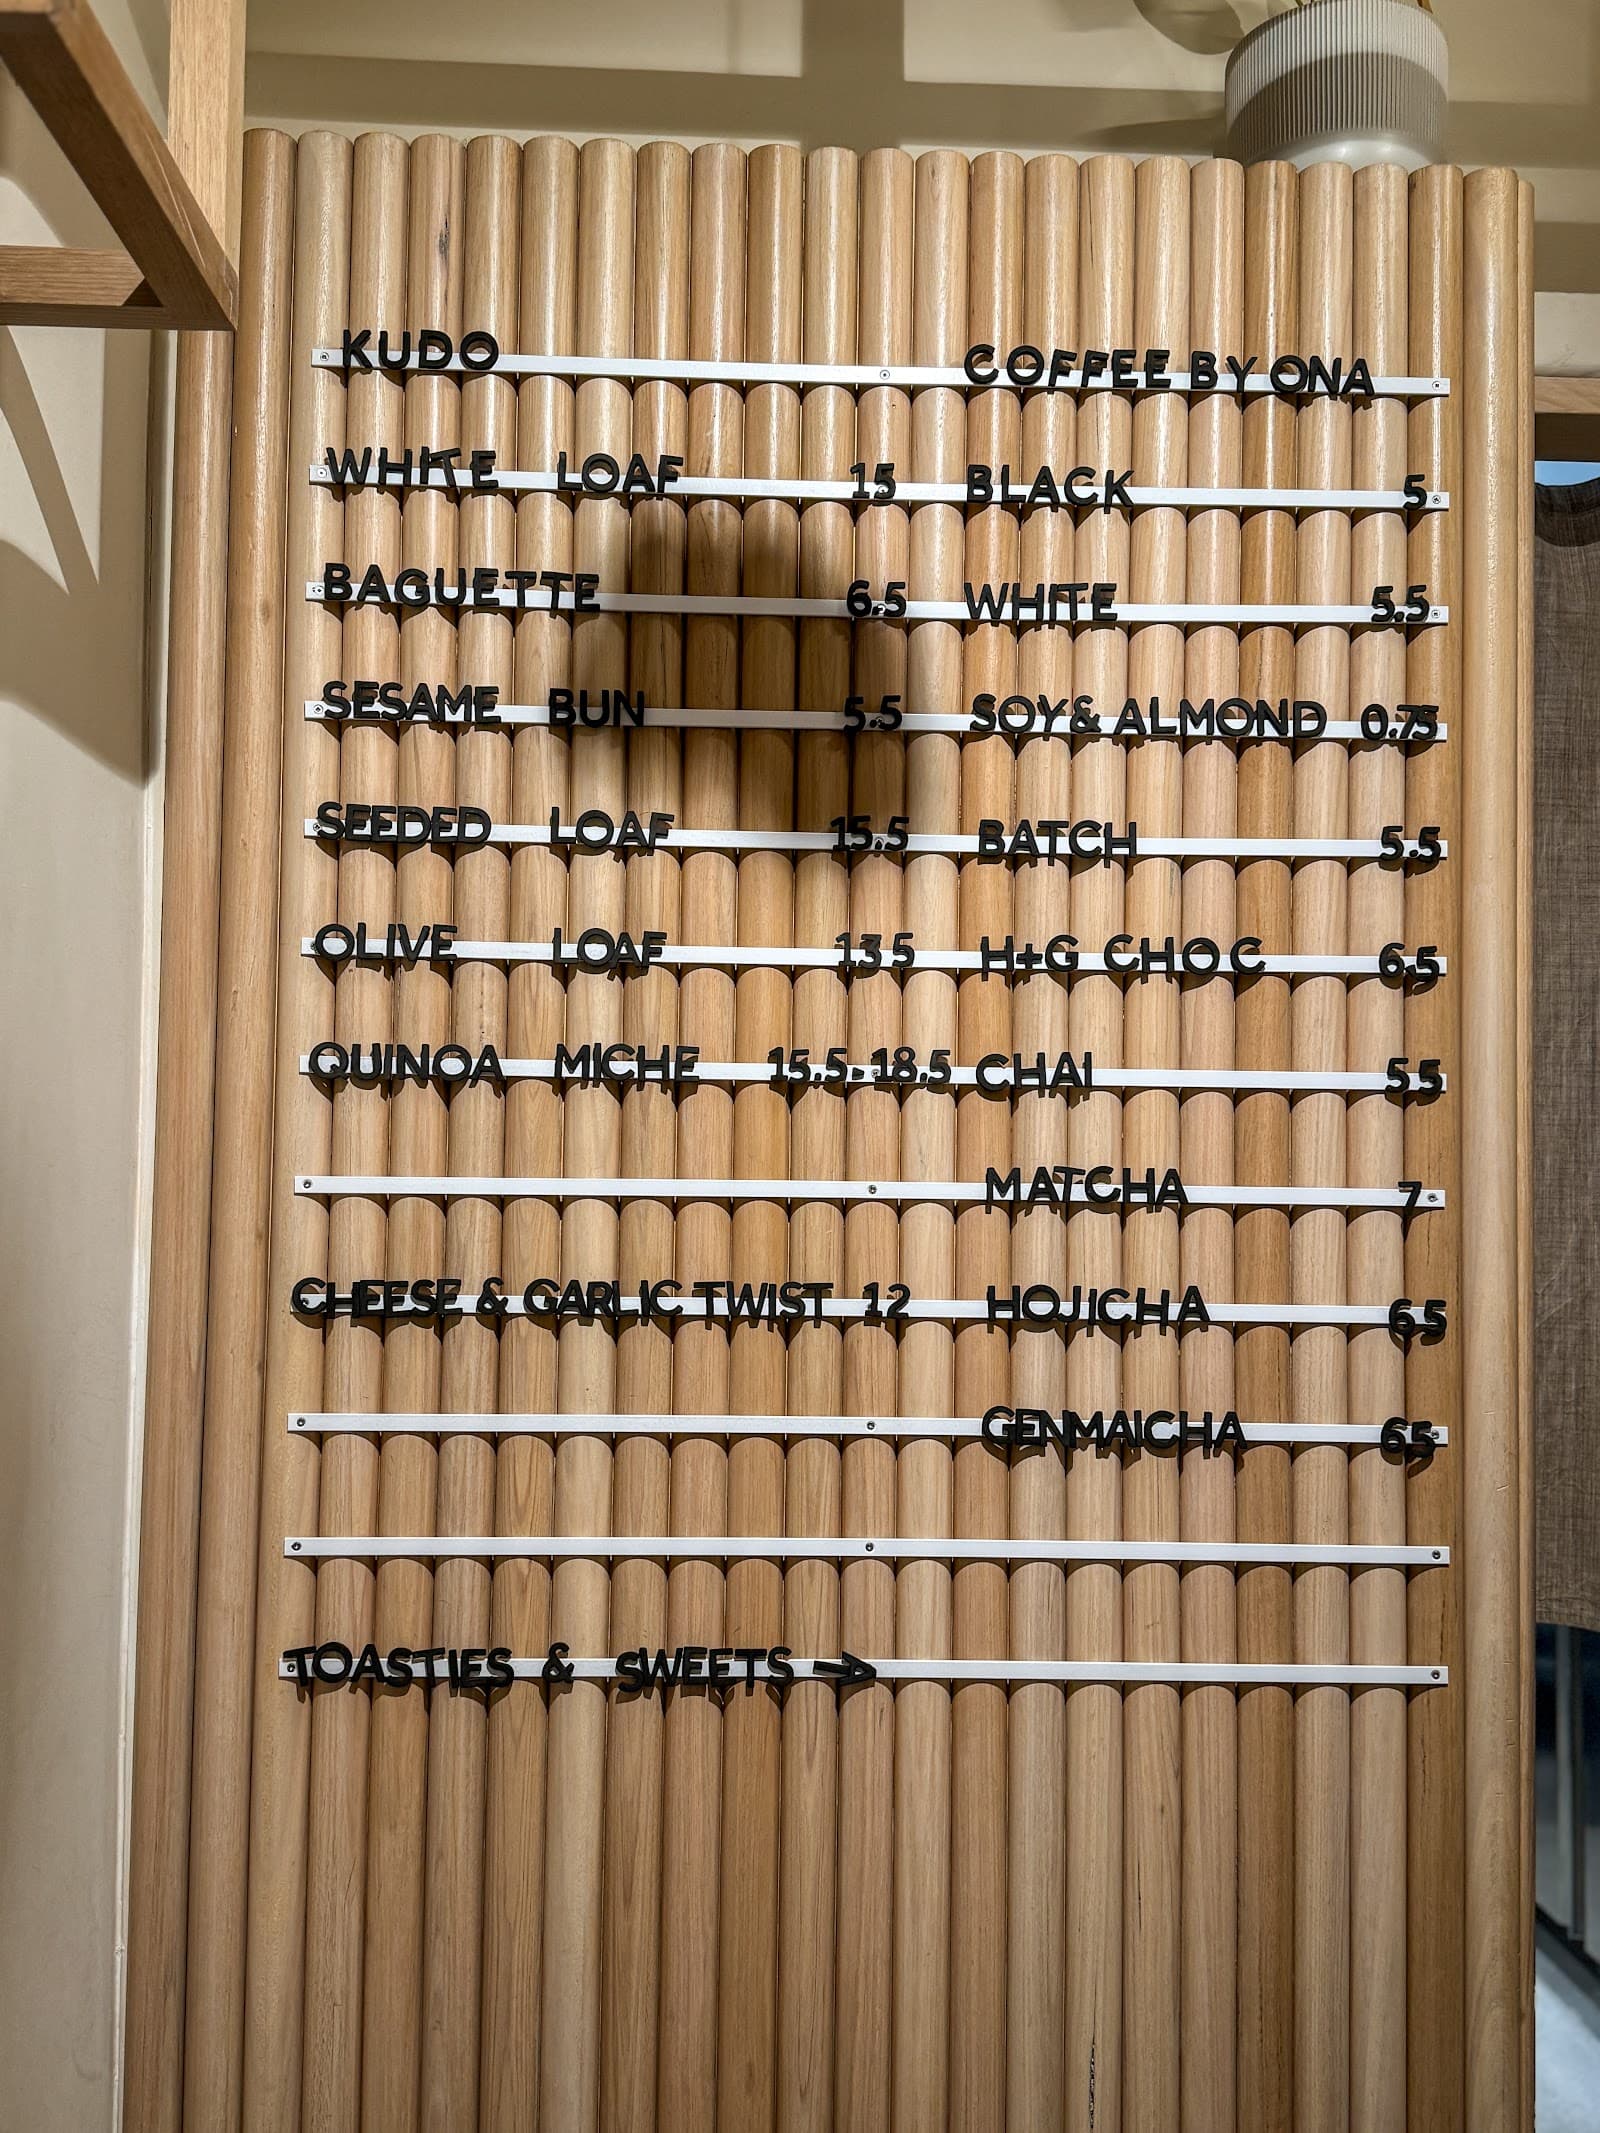 KUDO
WHITE LOAF 15
BAGUETTE 6.5
SESAME BUN 5.5
SEEDED LOAF 15.5
OLIVE LOAF 13 5
QUINOA MICHE 15.5-18.5
CHEESE & GARLIC TWIST 12
TOASTIES & SWEETS →
COFFEE BY ONA
BLACK 5
WHITE 5.5
SOY & ALMOND 0.75
BATCH 5.5
H+G CHOC 6.5
CHAI 5 5
MATCHA 7
HOJICHA 6 5
GENMAICHA 6 5